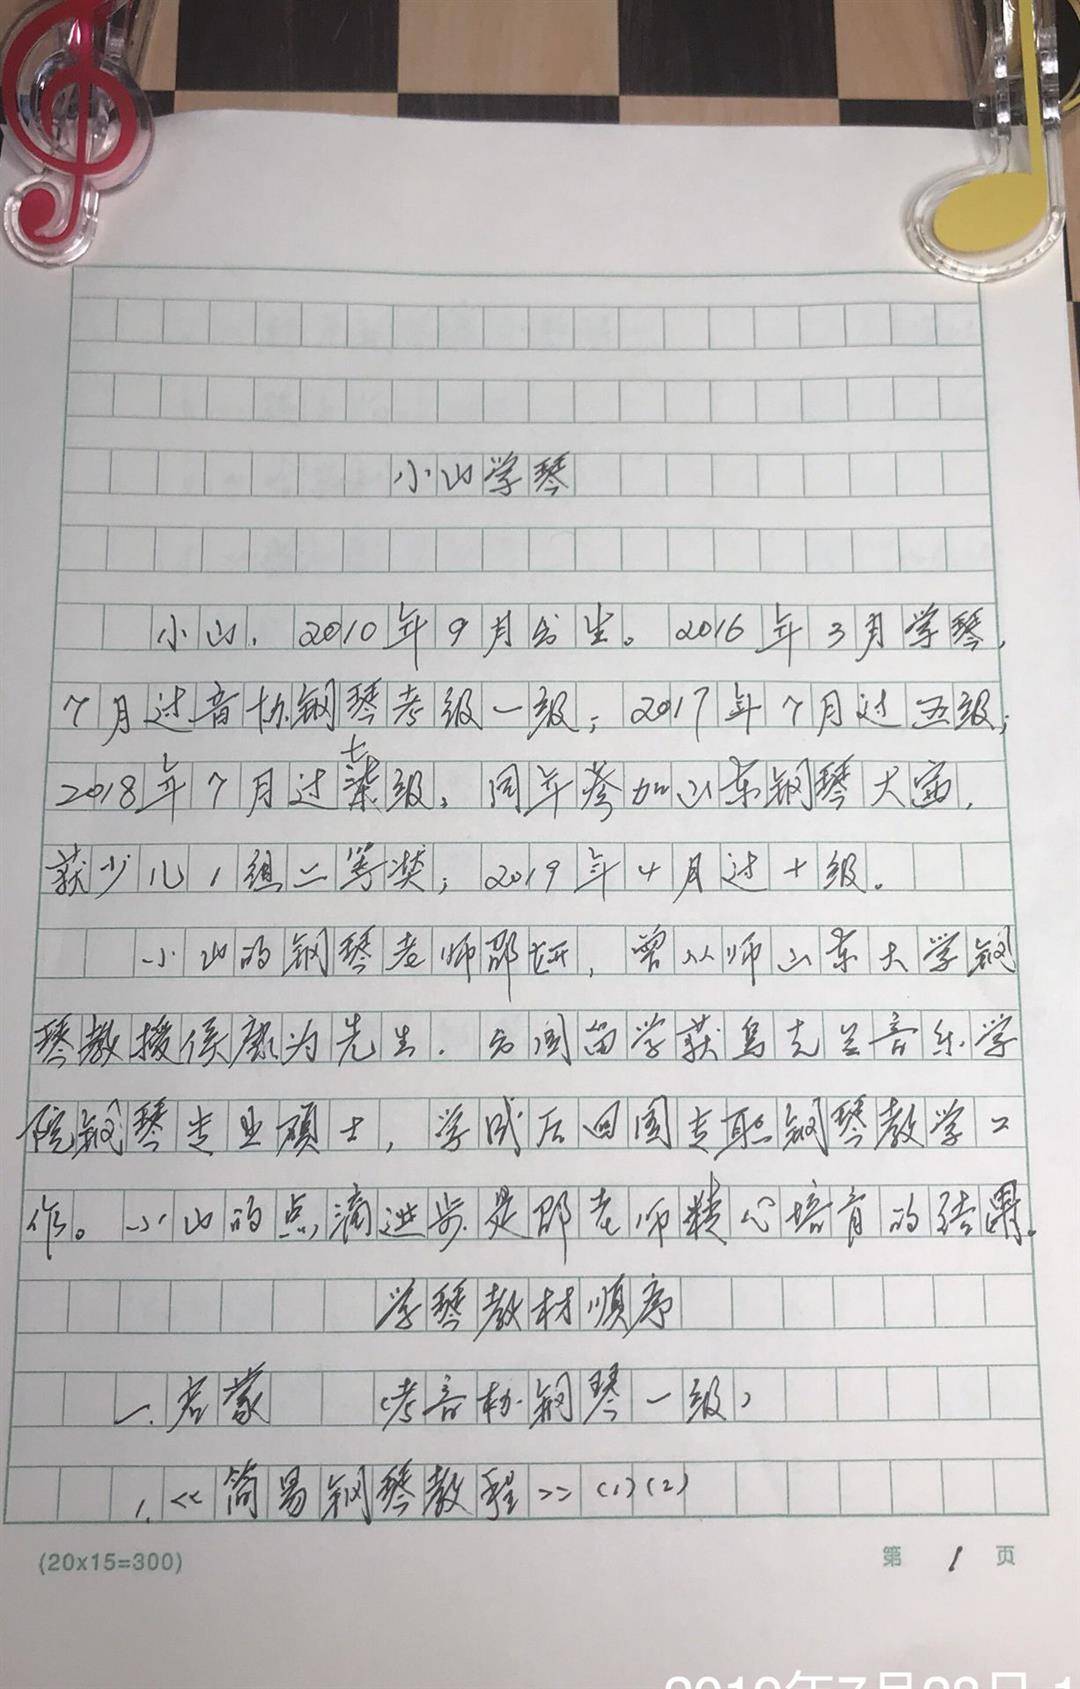 小山学琴
小山，2010年9月出生。2016年3月学琴，
7月过音协钢琴考级一级；2017年7月过五级；
2018年7月过七级，同年参加山东钢琴大赛，
获少儿1组二等奖；2019年4月过十级。
小山的钢琴老师邵妍，曾从师山东大学钢
琴教授侯康为先生，出国留学获乌克兰音乐学
院钢琴专业硕士，学成后回国专职钢琴教学工
作。小山的点滴进步是邵老师精心培育的结果。
学琴教材顺序
一.启蒙 （考音协钢琴一级）
1.《简易钢琴教程》(1)(2)
(20x15=300) 第 1 页